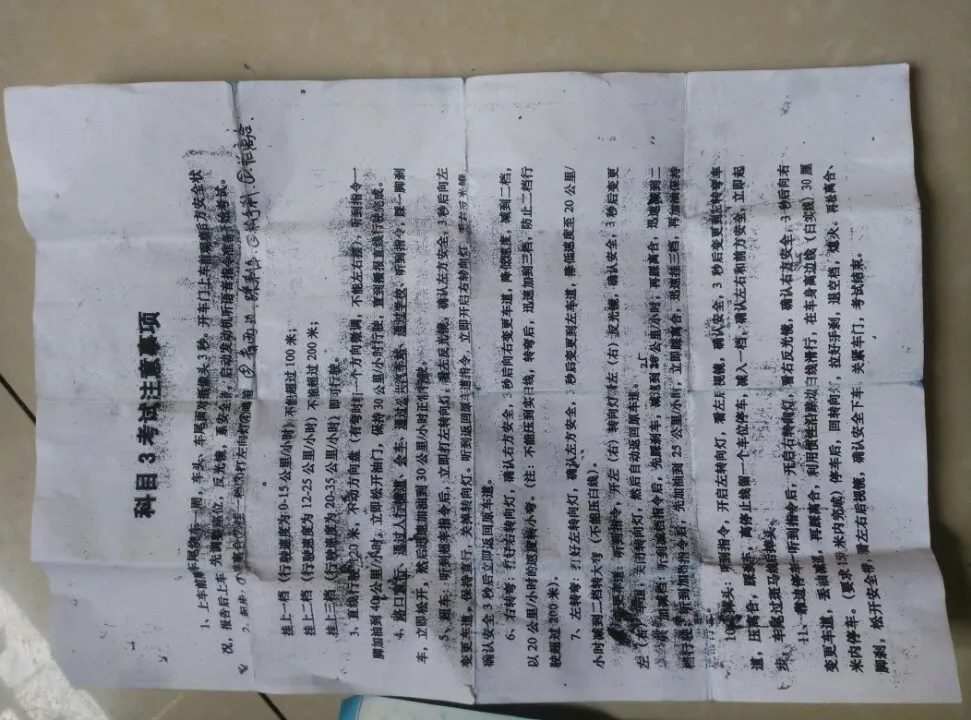 科目3考试注意事项
1、上车前绕车尾顺车一周，车头、车尾面对摄像头3秒，开车门上车前观后方安全状
况，报告后上车，先调整座位，反光镜，系安全带，启动发动机听语音指令准备考试。
2、起步：打左向灯 鸣喇叭 看右边 踩离合 挂档 松手刹 松离合
挂上一档（行驶速度为0-15公里/小时）不能超过100米；
挂上二档（行驶速度为12-25公里/小时）不能超过200米；
挂上三档（行驶速度为20-35公里/小时）即可行驶。
3、直线行驶：120米，不动方向盘（有弯时往一个方向微调，不能左右摆），听到指令一
脚加油到40公里/小时，立即松开油门，保持30公里/小时行驶，直到播报直线行驶完成。
4、路口直行、通过人行横道、会车、通过公共汽车站、通过学校、听到指令，踩一脚刹
车，立即松开，然后提加油到30公里/小时正常行驶。
5、超车：听到超车指令后，立即打左转向灯，看左反光镜，确认左方安全，3秒后向左
变更车道，保持直行，关掉转向灯。听到返回原车道指令，立即开启右转向灯，看右反光镜
确认安全3秒后立即返回原车道。
6、右转弯：打好右转向灯，确认右方安全，3秒后向右变更车道，降低速度，减到二档，
以20公里/小时的速度转小弯。（注：不能压到实白线，转弯后，迅速加到三档，防止二档行
驶超过200米）。
7、左转弯：打好左转向灯，确认左方安全，3秒后变更到左车道，降低速度至20公里/
小时减到二档转大弯（不能压白线）。
听到指令，开左（右）转向灯看左（右）反光镜，确认安全，3秒后变更
左（右）车道，关闭转向灯，然后自动返回原车道。
听到减档指令后，先踩刹车，减到25公里/小时；再踩离合，迅速减到二
档行驶，听到加档指令后，先加油到25公里/小时，立即踩离合，迅速挂三档，再加油保持
10、掉头：听到指令，开启左转向灯，看左反视镜，确认安全，3秒后变更到左转弯车
道，压离合，踩刹车，离停止线留一个车位停车，减入一档，确认左右和前方安全，立即起
步，车尾过斑马线后掉头。
11、靠边停车：听到指令后，开启右转向灯，看右反光镜，确认右方安全，3秒后向右
变更车道，丢油减速，再踩离合，利用惯性沿路边白线滑行，在车身离边线（白实线）30厘
米内停车。（要求150米内完成）停车后，回转向灯，拉好手刹，退空档，熄火，再松离合、
脚刹，松开安全带，看左右后视镜，确认安全下车，关紧车门，考试结束。